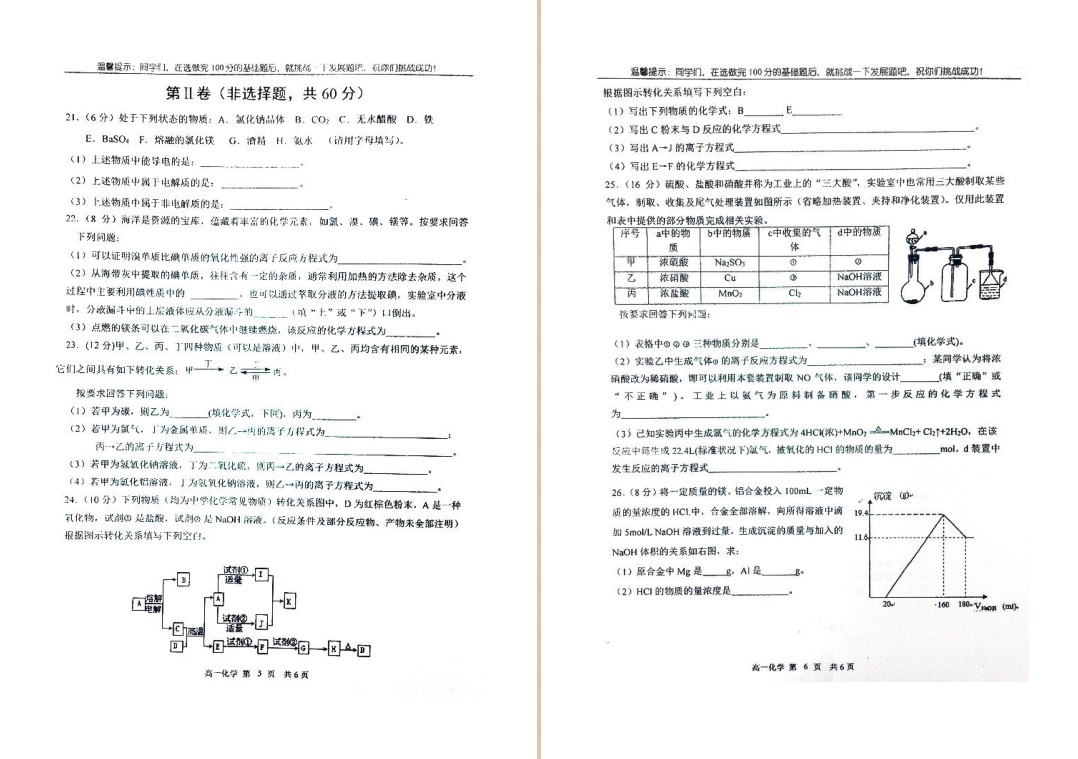 温馨提示：同学们，在选做完100分的基础题后，就挑战一下发展题吧，祝你们挑战成功！
第Ⅱ卷（非选择题，共60分）
21.（6分）处于下列状态的物质：A. 氯化钠晶体 B. CO₂ C. 无水醋酸 D. 铁
E. BaSO₄ F. 熔融的氯化镁 G. 酒精 H. 氨水 （请用字母填写）。
（1）上述物质中能导电的是：________。
（2）上述物质中属于电解质的是：________。
（3）上述物质中属于非电解质的是：________。
22.（8分）海洋是资源的宝库，蕴藏着丰富的化学元素，如氯、溴、碘、镁等。按要求回答
下列问题：
（1）可以证明溴单质比碘单质的氧化性强的离子反应方程式为________
（2）从海带灰中提取的碘单质，往往含有一定的杂质，通常利用加热的方法除去杂质，这个
过程中主要利用碘性质中的________，也可以通过萃取分液的方法提取碘，实验室中分液
时，分液漏斗中的上层液体应从分液漏斗的______（填“上”或“下”）口倒出。
（3）点燃的镁条可以在二氧化碳气体中继续燃烧，该反应的化学方程式为________。
23.（12分)甲、乙、丙、丁四种物质（可以是溶液）中，甲、乙、丙均含有相同的某种元素，
它们之间具有如下转化关系：甲 丁 乙 甲 丙。
按要求回答下列问题：
（1）若甲为碳，则乙为______(填化学式，下同)，丙为______。
（2）若甲为氯气，丁为金属单质，则乙→丙的离子方程式为________；
丙→乙的离子方程式为________。
（3）若甲为氢氧化钠溶液，丁为二氧化硫，则丙→乙的离子方程式为________。
（4）若甲为氯化铝溶液，丁为氢氧化钠溶液，则乙→丙的离子方程式为________。
24.（10分）下列物质（均为中学化学常见物质）转化关系图中，D为红棕色粉末，A是一种
氧化物，试剂①是盐酸，试剂②是NaOH溶液。（反应条件及部分反应物、产物未全部注明）
根据图示转化关系填写下列空白。
B 试剂① 适量 I
A 熔融 电解 A K
C 高温 试剂② 适量 J
D E 试剂① F 试剂② G H △ D
高一化学 第 5 页 共6页
温馨提示：同学们，在选做完100分的基础题后，就挑战一下发展题吧，祝你们挑战成功！
根据图示转化关系填写下列空白：
（1）写出下列物质的化学式：B______E______
（2）写出C粉末与D反应的化学方程式________。
（3）写出A→J的离子方程式________。
（4）写出E→F的化学方程式________。
25.（16 分）硫酸、盐酸和硝酸并称为工业上的“三大酸”，实验室中也常用三大酸制取某些
气体，制取、收集及尾气处理装置如图所示（省略加热装置、夹持和净化装置）。仅用此装置
和表中提供的部分物质完成相关实验。
序号 a中的物质 b中的物质 c中收集的气体 d中的物质
甲 浓硫酸 Na₂SO₃ ① ②
乙 浓硝酸 Cu ③ NaOH溶液
丙 浓盐酸 MnO₂ Cl₂ NaOH溶液
a
b
c
d
按要求回答下列问题：
（1）表格中①②③三种物质分别是______、______、______(填化学式)。
（2）实验乙中生成气体③的离子反应方程式为________；某同学认为将浓
硝酸改为稀硝酸，即可以利用本套装置制取 NO 气体，该同学的设计______(填“正确”或
“不正确”)。工业上以氨气为原料制备硝酸，第一步反应的化学方程式
为________。
（3）已知实验丙中生成氯气的化学方程式为 4HCl(浓)+MnO₂ △ MnCl₂+ Cl₂↑+2H₂O，在该
反应中每生成 22.4L(标准状况下)氯气，被氧化的 HCl 的物质的量为______mol，d 装置中
发生反应的离子方程式________。
26.（8 分）将一定质量的镁、铝合金投入 100mL 一定物
质的量浓度的 HCl 中，合金全部溶解，向所得溶液中滴
加 5mol/L NaOH 溶液到过量，生成沉淀的质量与加入的
NaOH 体积的关系如右图，求：
（1）原合金中 Mg 是____g，Al 是____g。
（2）HCl 的物质的量浓度是________。
沉淀 (g)
19.4
11.6
20 160 180 V NaOH (ml)
高一化学 第 6 页 共6页